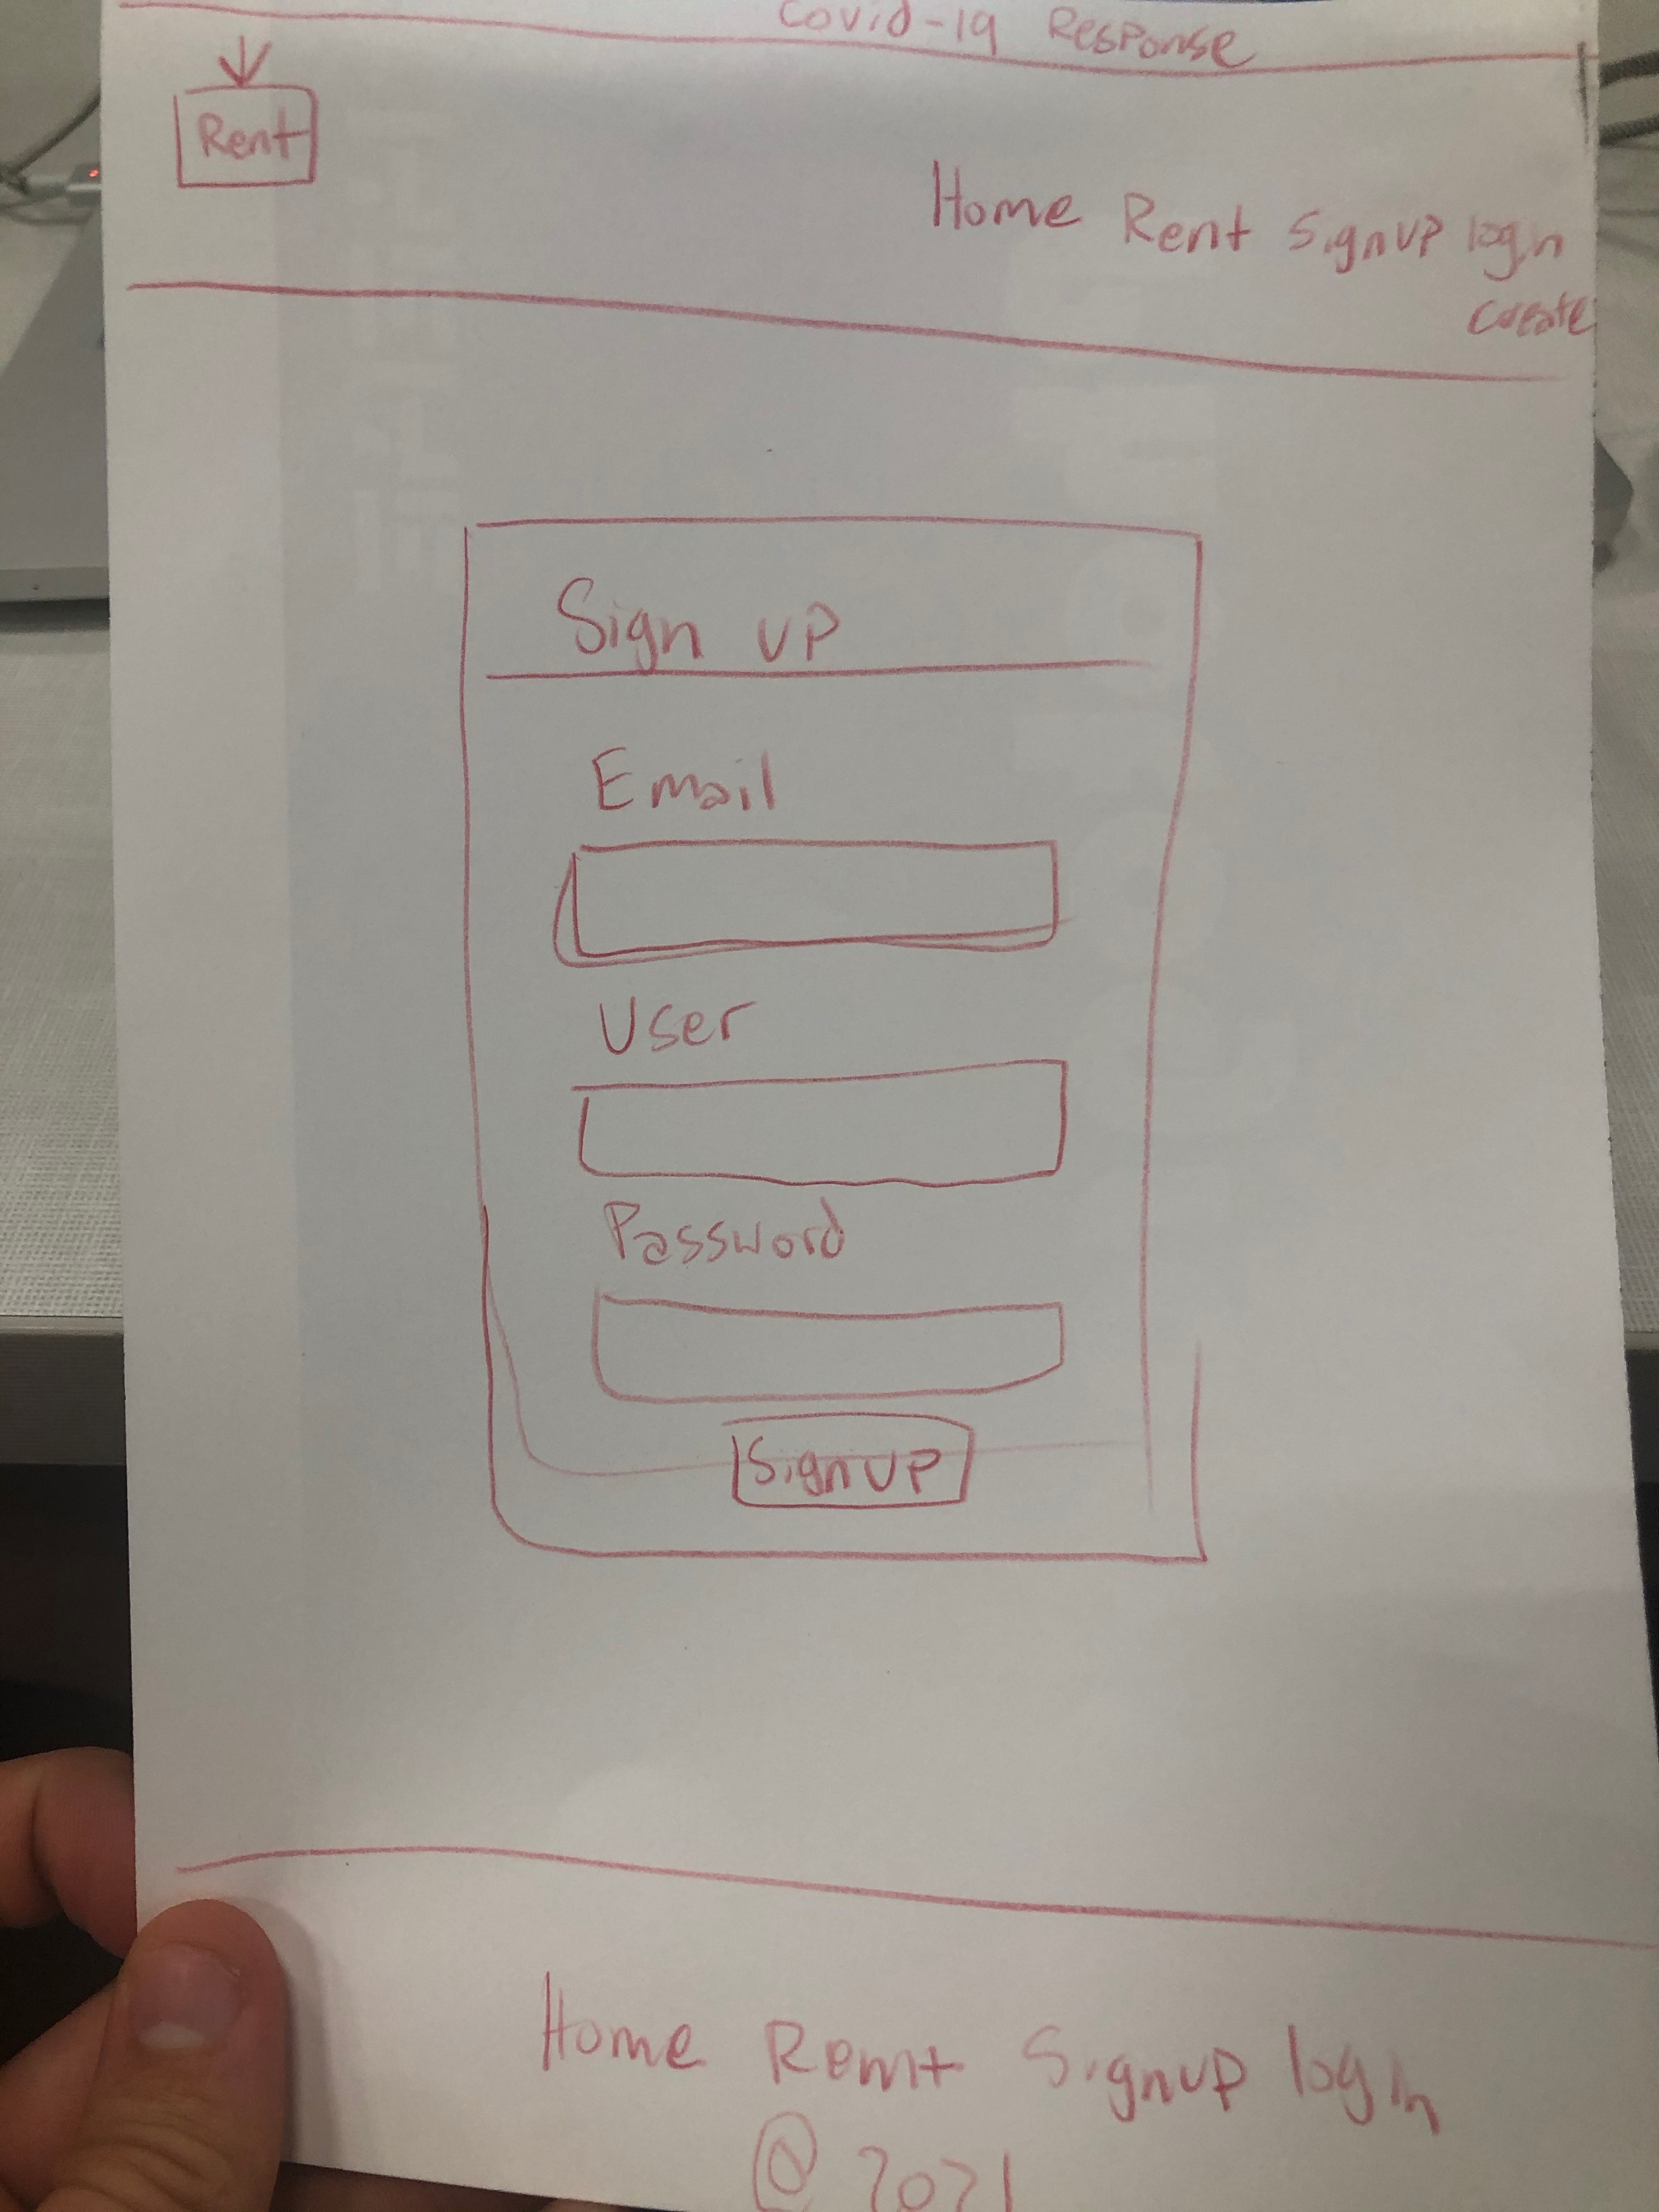 Covid-19 Response
Rent
Home Rent Signup login
create
Sign up
Email
User
Password
Signup
Home Remt Signup login
@ 2021